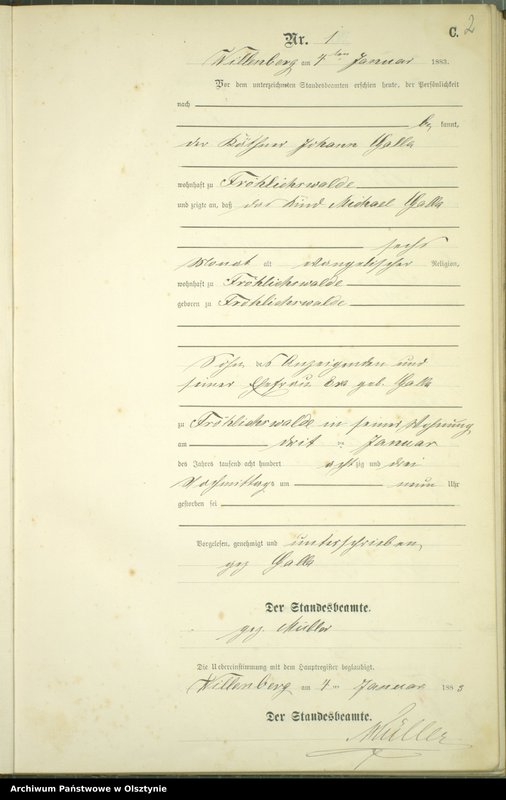 C. 2
Nr. 1
Willenberg am 4ten Januar 1883.
Vor dem unterzeichneten Standesbeamten erschien heute, der Persönlichkeit
nach
be kannt,
der Käthner Johann Galla
wohnhaft zu Fröhlichswalde
und zeigte an, daß das Kind Michael Galla
sechs
Monat alt evangelischer Religion,
wohnhaft zu Fröhlichswalde
geboren zu Fröhlichswalde
Sohn des Anzeigenden und
seiner Ehefrau Eva geb. Galla
zu Fröhlichswalde in seiner Wohnung
am drit en Januar
des Jahres tausend acht hundert achtzig und drei
Vormittags um neun Uhr
gestorben sei
Vorgelesen, genehmigt und unterschrieben
gez Galla
Der Standesbeamte.
gez. Müller
Die Uebereinstimmung mit dem Hauptregister beglaubigt.
Willenberg am 4ten Januar 1883
Der Standesbeamte.
Müller
Archiwum Państwowe w Olsztynie